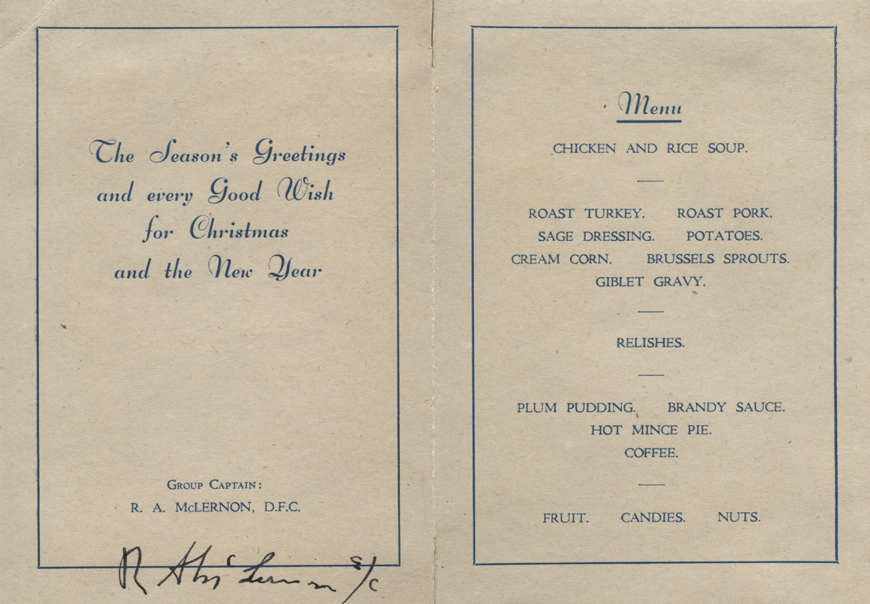 The Season's Greetings
and every Good Wish
for Christmas
and the New Year
GROUP CAPTAIN:
R. A. McLERNON, D.F.C.
R A McLernon G/C
Menu
CHICKEN AND RICE SOUP.
ROAST TURKEY. ROAST PORK.
SAGE DRESSING. POTATOES.
CREAM CORN. BRUSSELS SPROUTS.
GIBLET GRAVY.
RELISHES.
PLUM PUDDING. BRANDY SAUCE.
HOT MINCE PIE.
COFFEE.
FRUIT. CANDIES. NUTS.